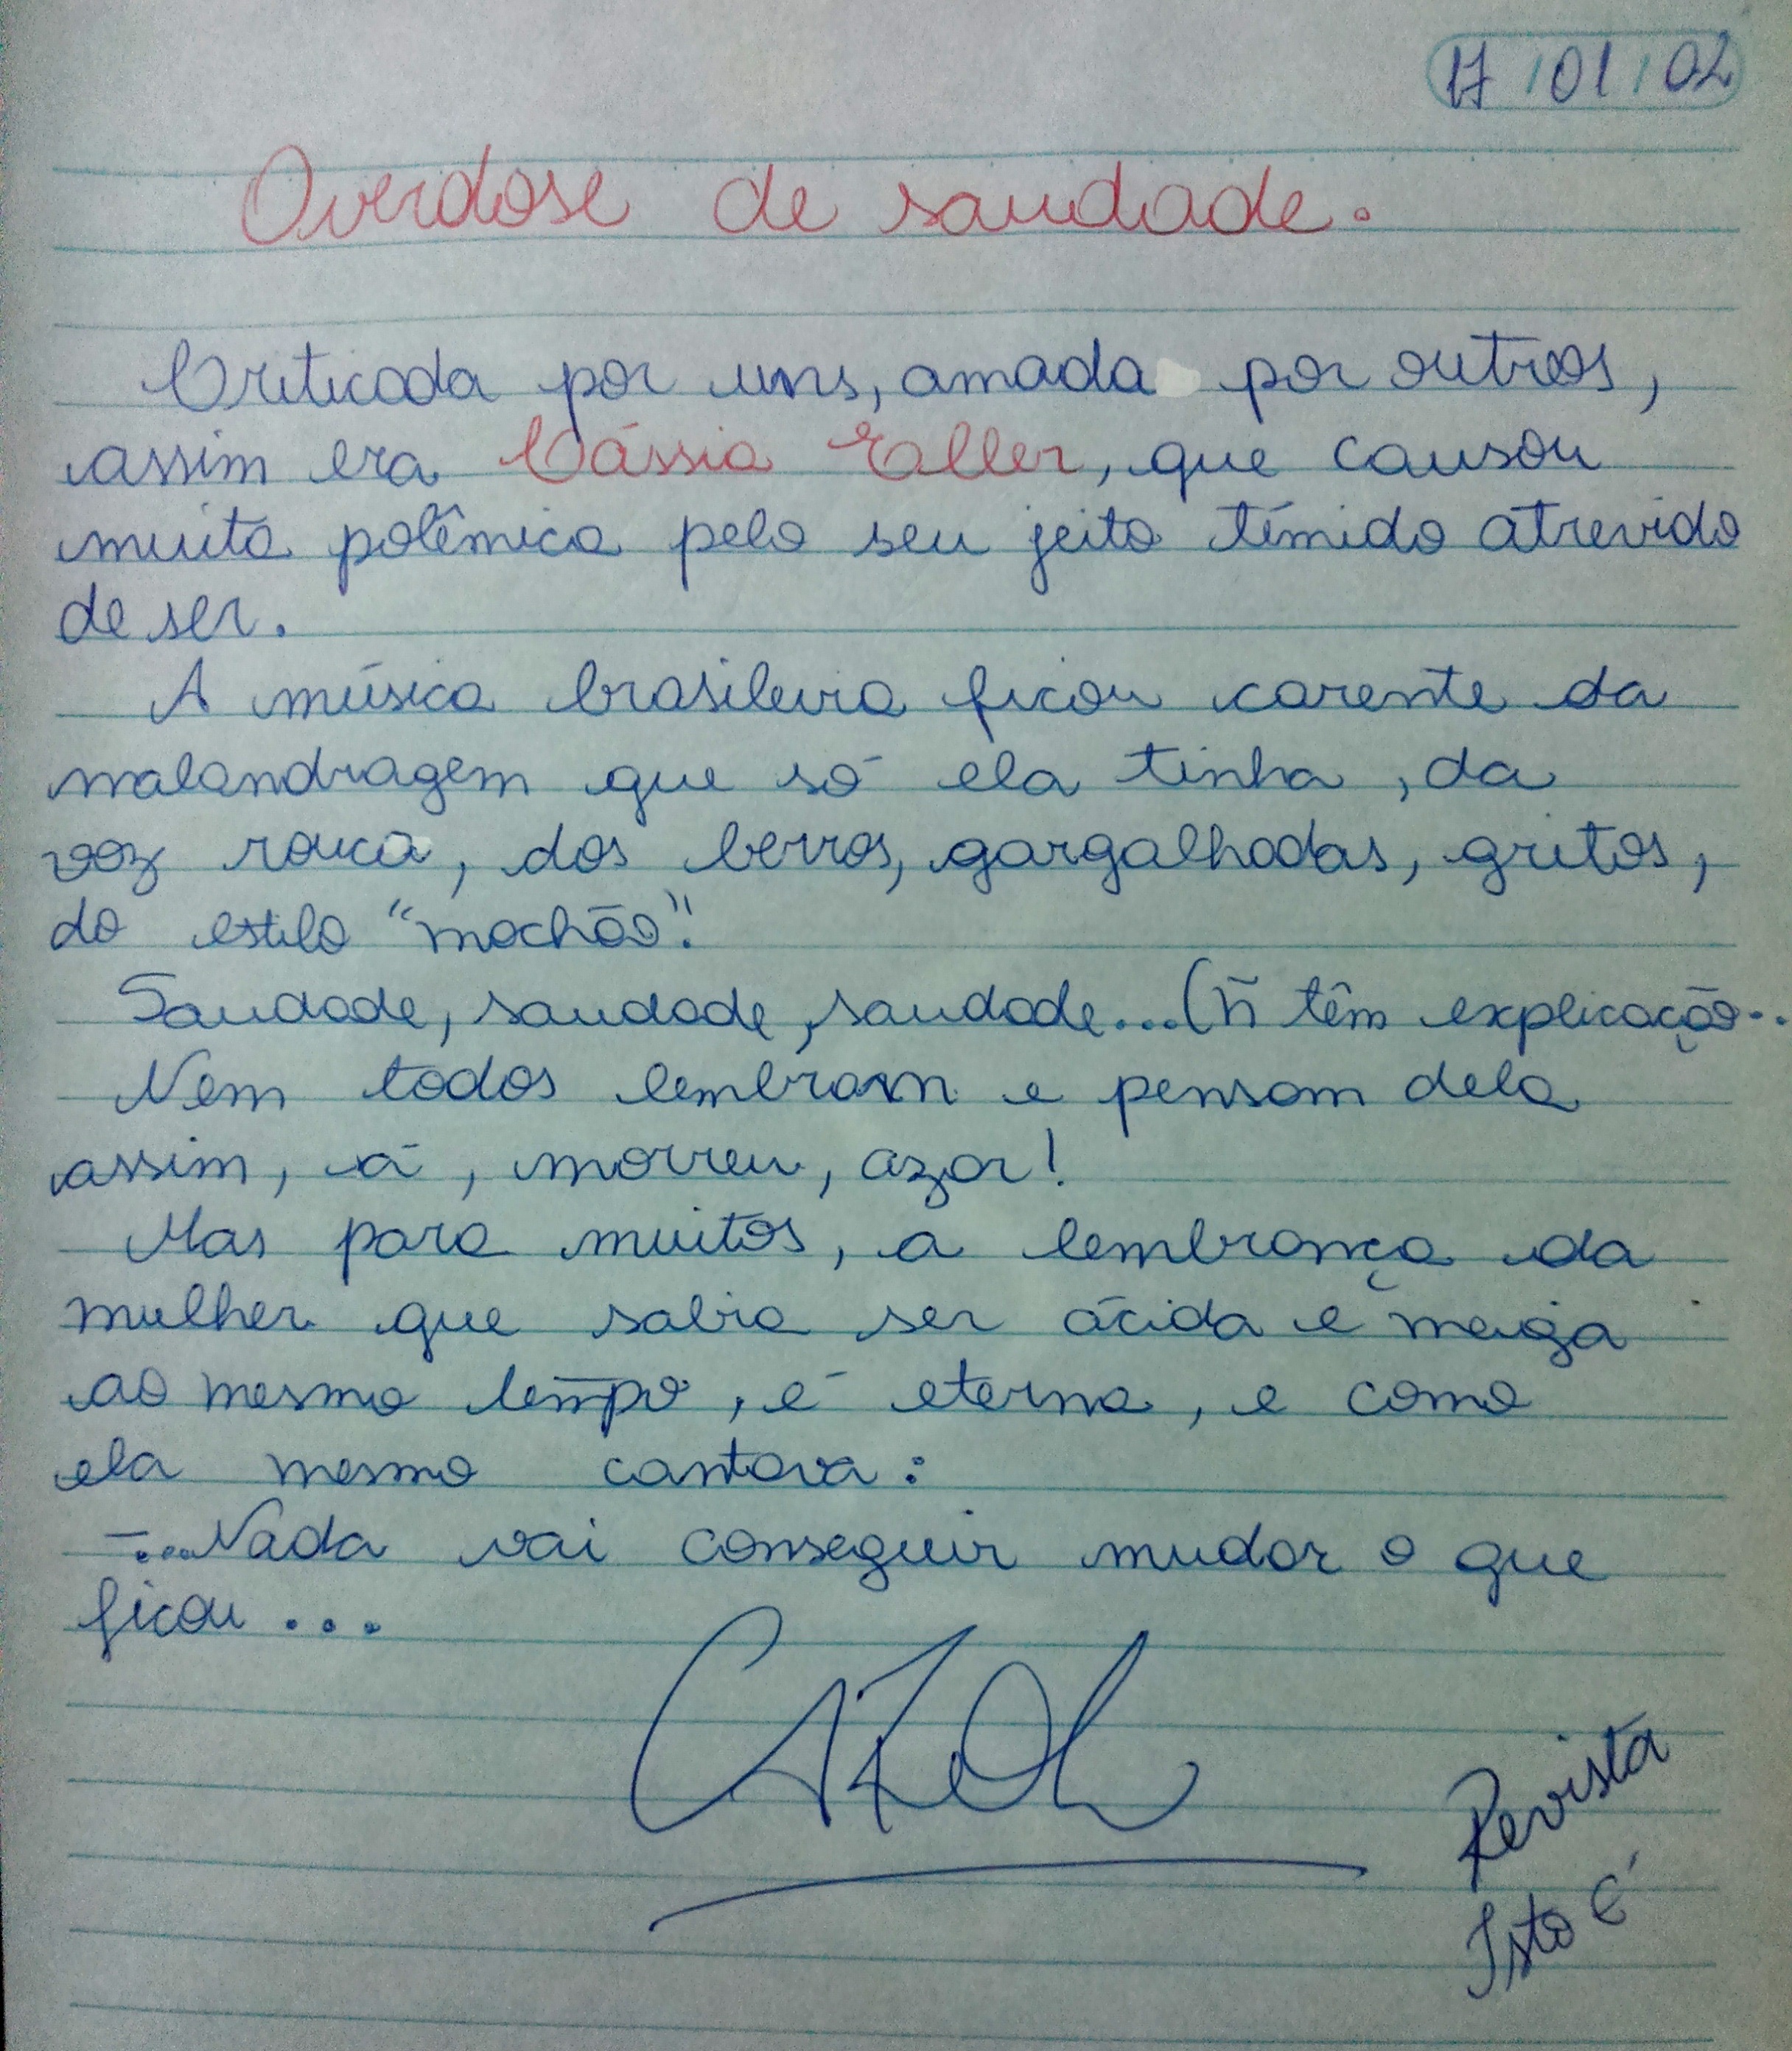 17/01/02
Overdose de saudade.
Criticada por uns, amada por outros,
assim era Cássia Eller, que causou
muita polêmica pelo seu jeito tímido atrevido
de ser.
A música brasileira ficou carente da
malandragem que só ela tinha, da
voz rouca, dos berros, gargalhadas, gritos,
do estilo "machão".
Saudade, saudade, saudade...(ñ têm explicação..
Nem todos lembram e pensam dela
assim, á, morreu, azar!
Mas para muitos, a lembrança da
mulher que sabia ser ácida e meiga
ao mesmo tempo, é eterna, e como
ela mesmo cantava:
-...Nada vai conseguir mudar o que
ficou...
Revista
Isto É